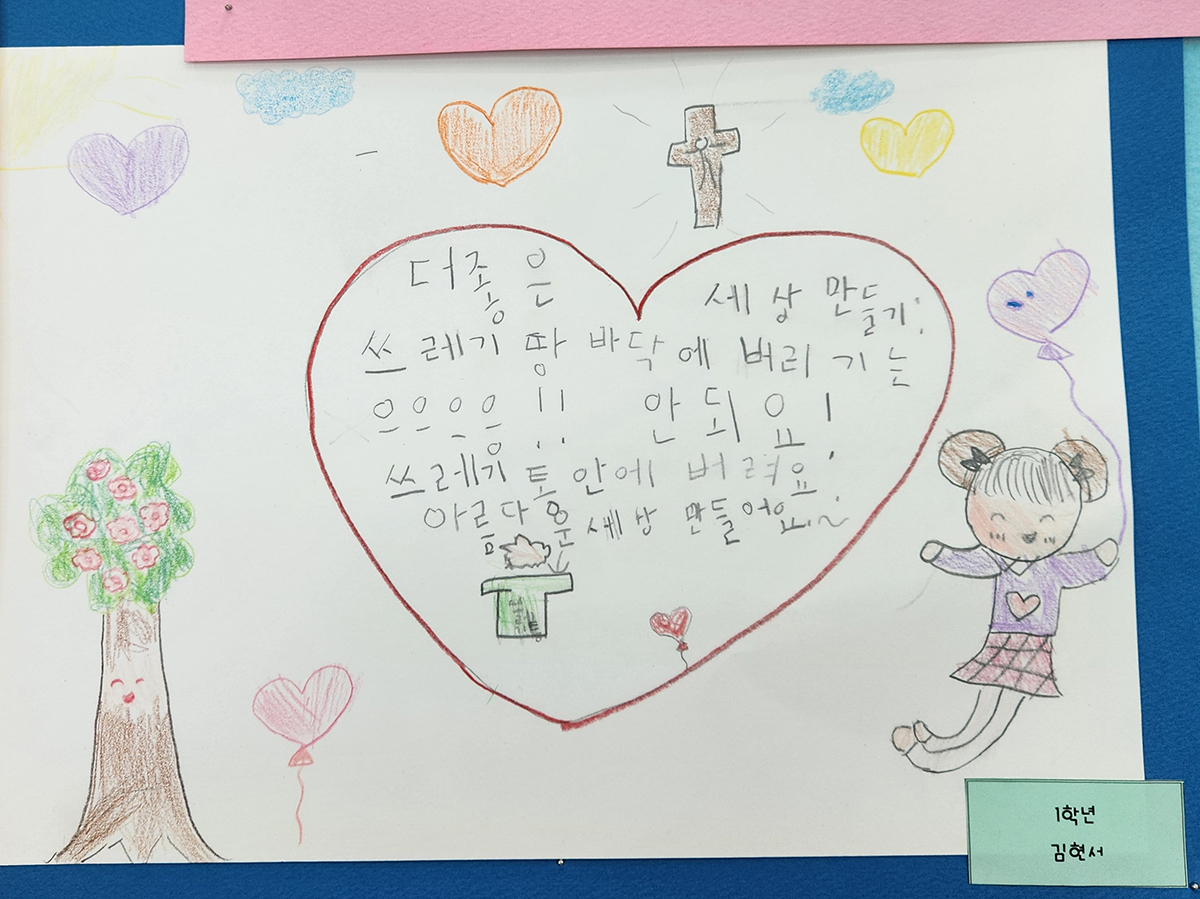 더좋은 세상 만들기!
쓰레기 땅 바닥에 버리기는
으으으응!! 안되요!
쓰레기통 안에 버려요!
아름다훈 세상 만들어요~
1학년
김현서